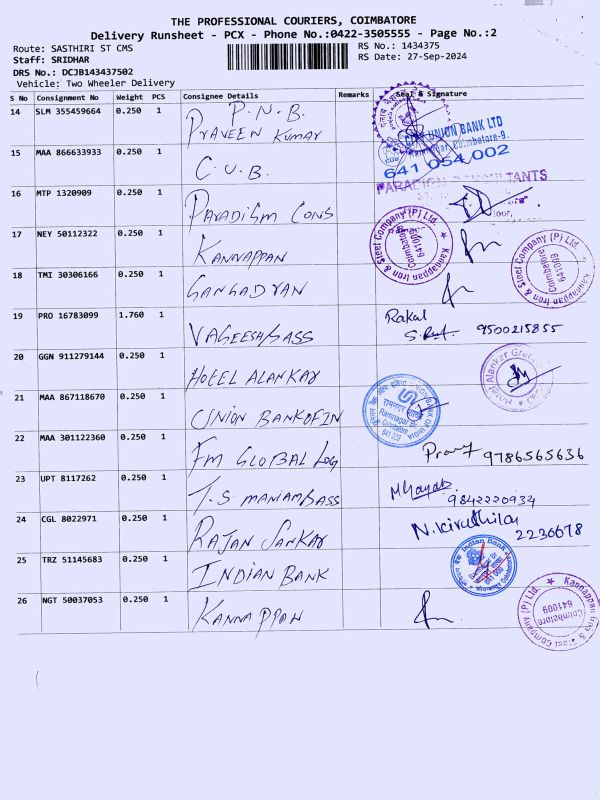 THE PROFESSIONAL COURIERS, COIMBATORE
Delivery Runsheet - PCX - Phone No.:0422-3505555 - Page No.:2
Route: SASTHIRI ST CMS
RS No.: 1434375
Staff: SRIDHAR
RS Date: 27-Sep-2024
DRS No.: DCJB143437502
Vehicle: Two Wheeler Delivery
S No Consignment No Weight PCS Consignee Details Remarks Seal & Signature
14 SLM 355459664 0.250 1 P.N.B.
PRAVEEN KUMAR
CITY UNION BANK LTD
Coimbatore-9.
641 054 002
15 MAA 866633933 0.250 1 C.U.B.
16 MTP 1320909 0.250 1 PARADISM CONS
17 NEY 50112322 0.250 1 KANNAPPAN
Kannappan Iron & Steel Company (P) Ltd.
Coimbatore
641009
18 TMI 30306166 0.250 1 GANGADRAN
Kannappan Iron & Steel Company (P) Ltd.
Coimbatore
641009
19 PRO 16783099 1.760 1 VAGEESH/SASS Rakul
9500215855
20 GGN 911279144 0.250 1 HOTEL ALANKAR
Hotel Alankar
21 MAA 867118670 0.250 1 UNION BANKOFIN
UNION BANK OF INDIA
Ramnagar Br
Coimbatore
641 009
22 MAA 301122360 0.250 1 FM GLOBAL LOG 9786565636
23 UPT 8117262 0.250 1 T.S MANIAM/SASS 9842220934
24 CGL 8022971 0.250 1 RAJAN SANKAR N.kiruthika
2236678
25 TRZ 51145683 0.250 1 INDIAN BANK
Indian Bank
26 NGT 50037053 0.250 1 KANNAPPAN
Kannappan Iron & Steel Company (P) Ltd.
Coimbatore
641009